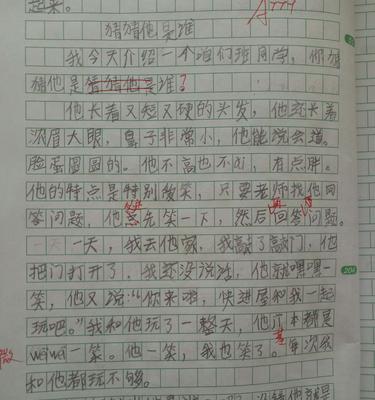 起来。
A+++
猜猜他是谁
我今天介绍一个咱们班同学，你们
猜他是猜猜他是谁？
他长着又短又硬的头发，他还长着
浓眉大眼，鼻子非常小，他能说会道。
脸蛋圆圆的。他不高也不ǎi，有点胖。
他的特点是特别爱笑，只要老师找他回
答问题，他总先笑一下，然后回答问题。
一天，我去他家，我敲了敲门，他
把门打开了，我还没说话，他就嘿嘿一
笑，他又说：“你来啦，快进屋和我一起
玩吧。”我和他玩了一整天，他
weiwei一笑。他一笑，我也笑了。每次我
和他都玩不够。
204